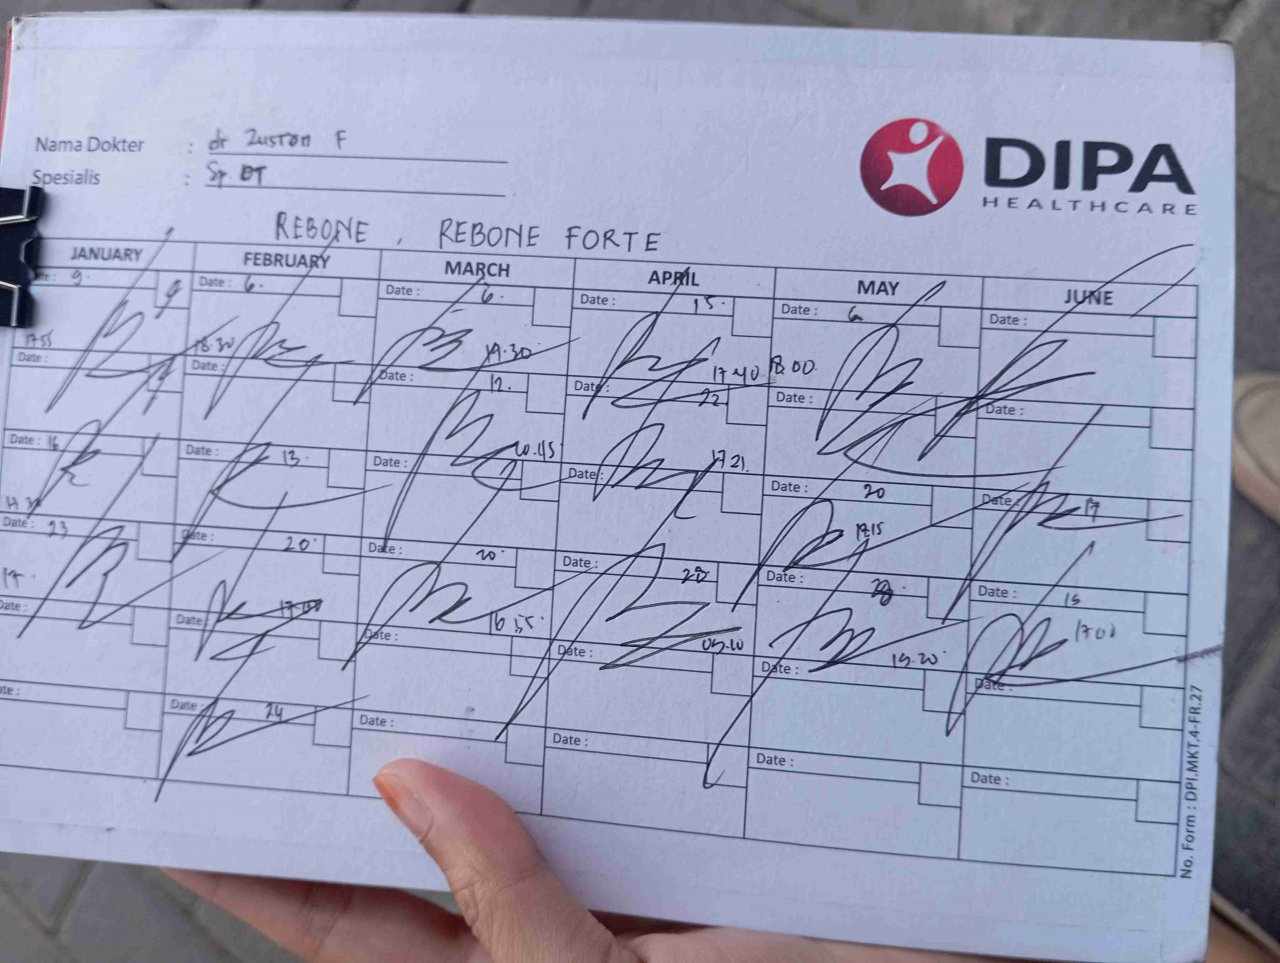 Nama Dokter : dr Zuston F
Spesialis : Sp. OT
DIPA
HEALTHCARE
REBONE, REBONE FORTE
JANUARY FEBRUARY MARCH APRIL MAY JUNE
Date: 9. Date: 6. Date: 6. Date: 15. Date: 6 Date:
17.55 18.30 19.30 17.40 18.00
Date: Date: Date: 12. Date: 22 Date: Date:
20.45 17.21.
Date: 16 Date: 13. Date: Date: Date: 20 Date: 17
17.15
Date: 23 Date: 20. Date: 20. Date: Date: Date: 15
17. 16.55 05.10 15.20 17.00
Date: Date: Date: Date: Date: Date:
Date: Date: 24 Date: Date: Date: Date:
No. Form : DPI.MKT.4-FR.27